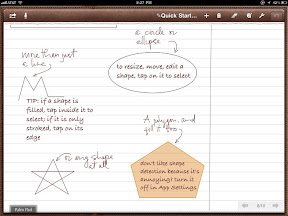 AT&T
8:27 PM
63%
Quick Start...
a circle or
ellipse
more than just
a line
to resize, move, edit a
shape, tap on it to select
TIP: if a shape is
filled, tap inside it to
select; if it is only
stroked, tap on its
edge
A polygon, and
fill it too
or any shape
at all
don't like shape
detection because it's
annoying? turn it
off in App Settings